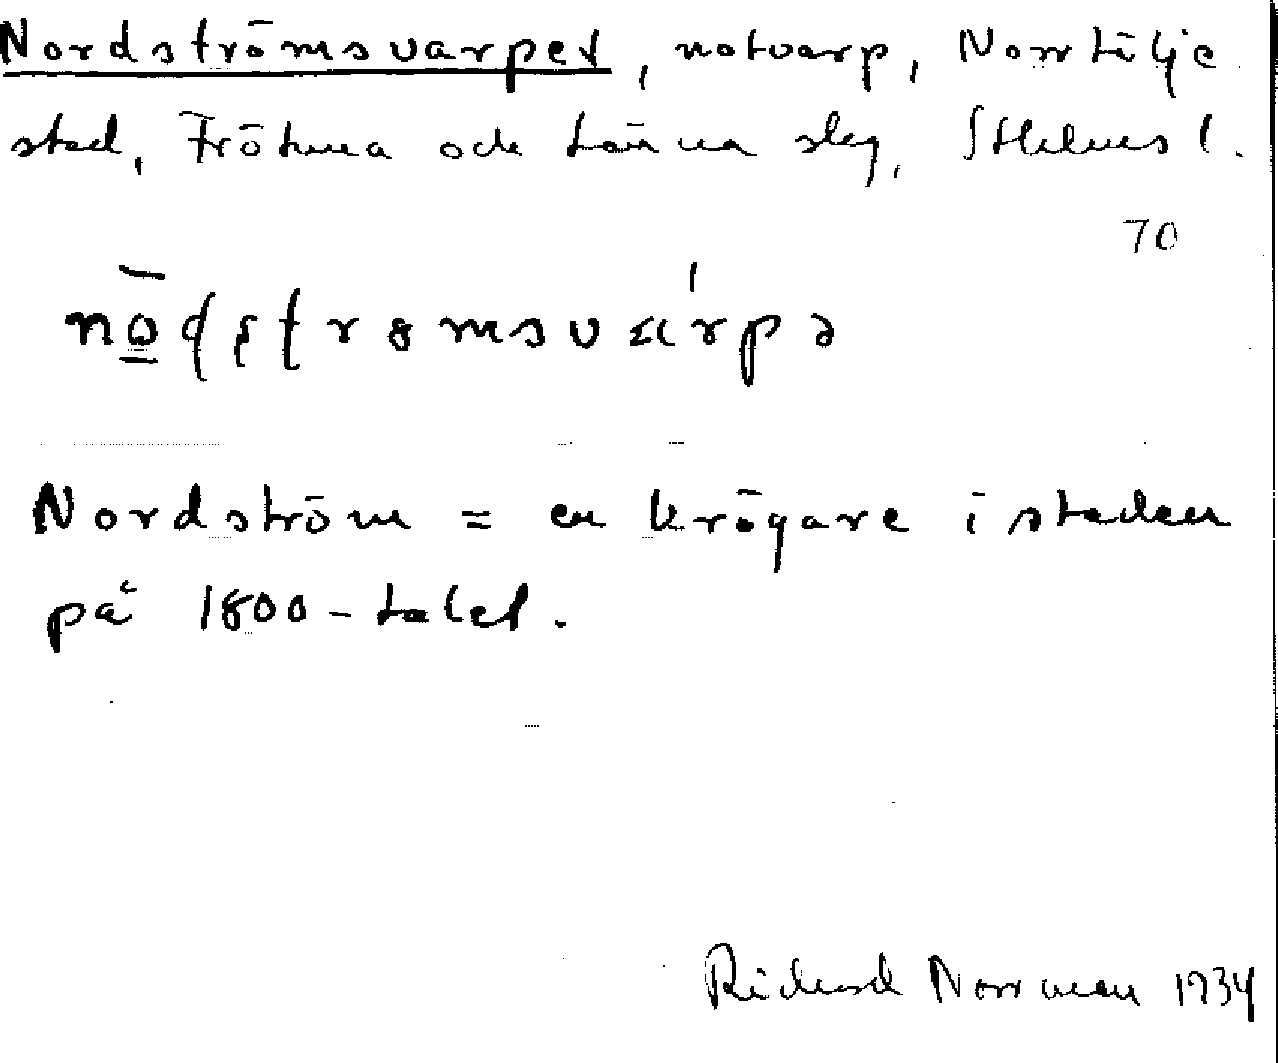 Nordströmsvarpet, notvarp, Norrtälje
stad, Frötuna och Länna slg, Sthlms l.
70
Nordström = en krögare i staden
på 1800-talet.
Richard Norrman 1934